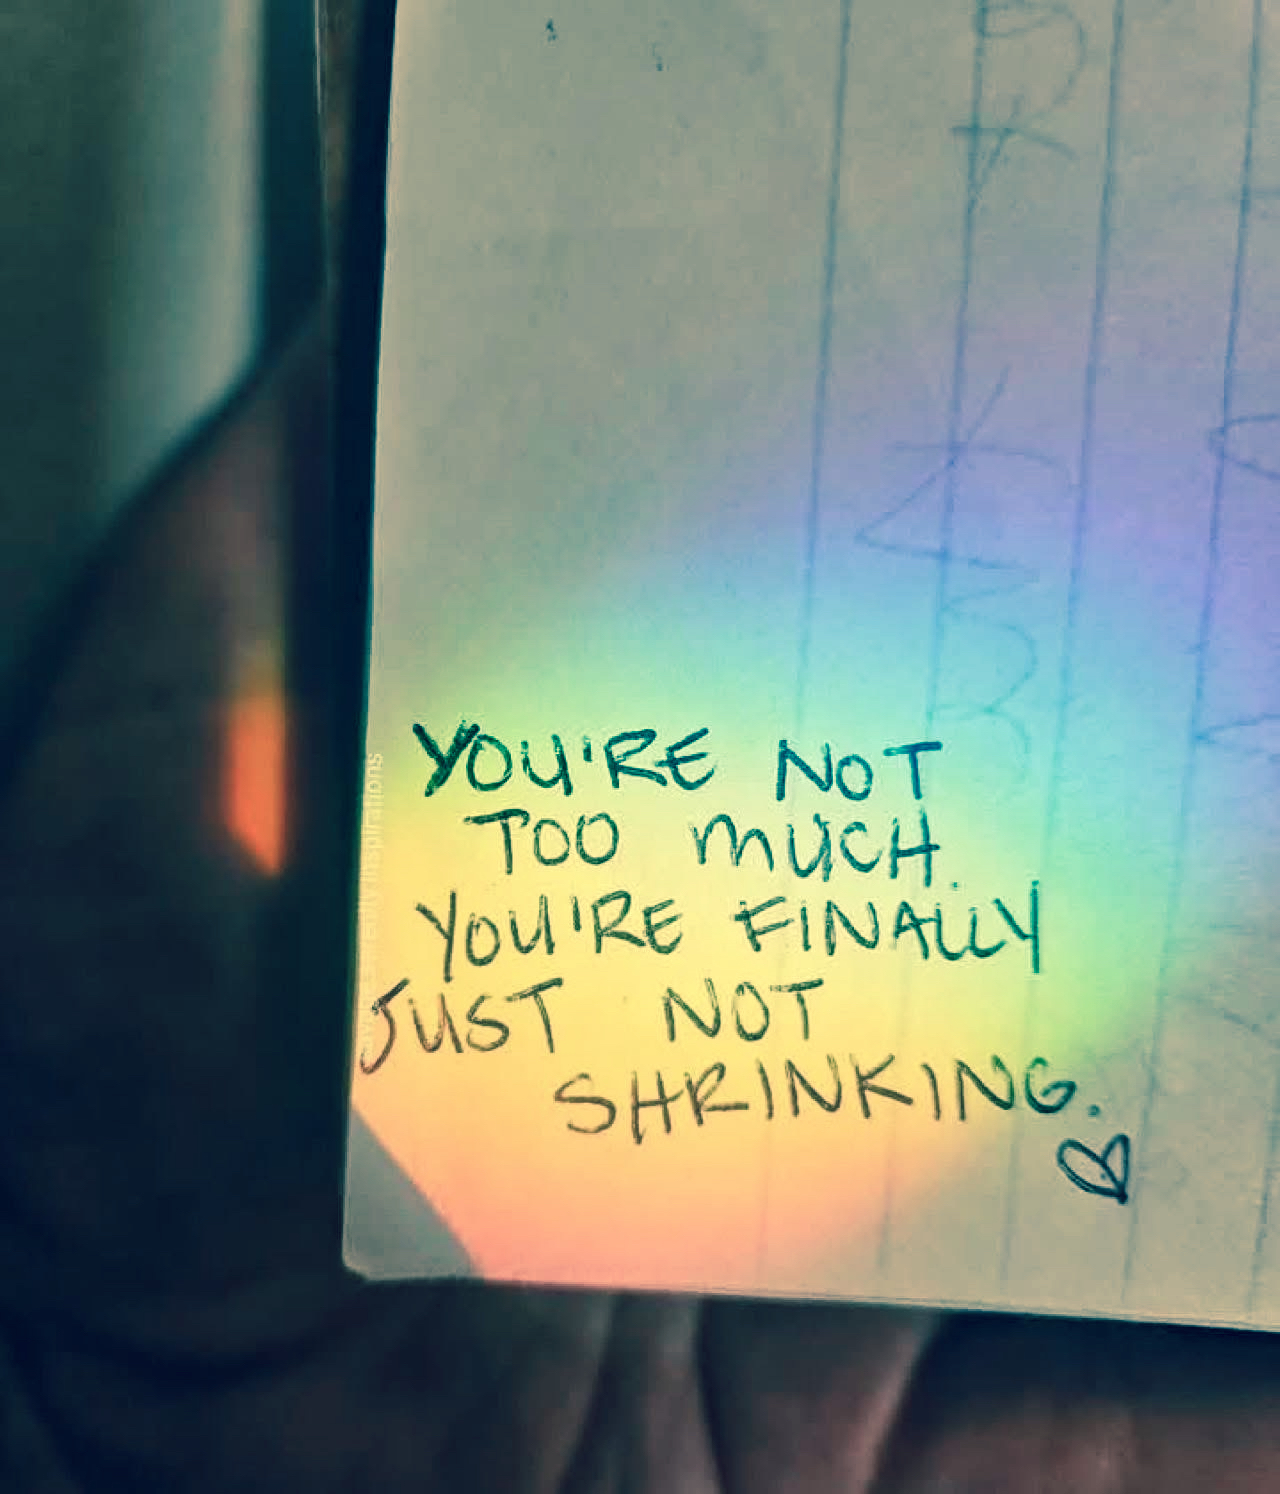 YOU'RE NOT
TOO MUCH.
YOU'RE FINALLY
JUST NOT
SHRINKING.